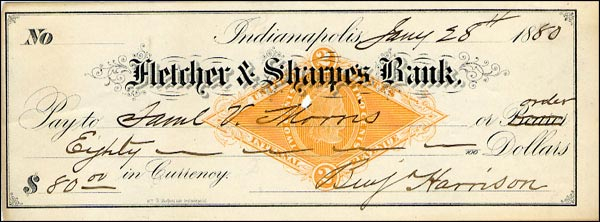 No Indianapolis, Jany 28th 1880
Fletcher & Sharpe's Bank.
order
Pay to Saml V. Morris or Bearer
Eighty — — — — — 100 Dollars
$ 80.00 in Currency. Benj Harrison